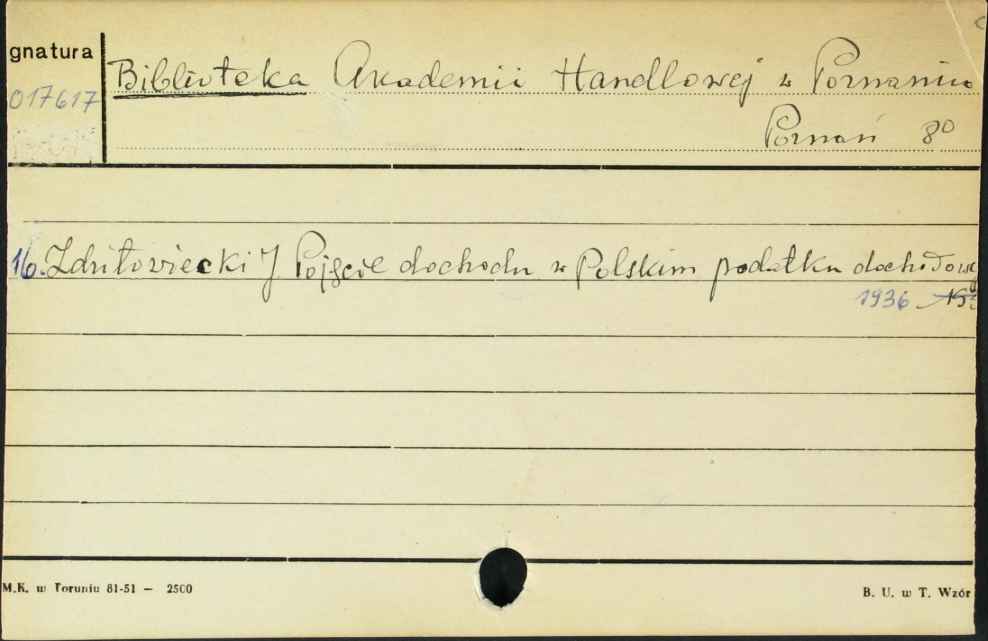 gnatura
017617
Biblioteka Akademii Handlowej w Poznaniu
Poznań 8º
16. Zdziłowiecki J Pojęcie dochodu w Polskim podatku dochodow
1936
M.K. w Toruniu 81-51 — 2500
B. U. w T. Wzór